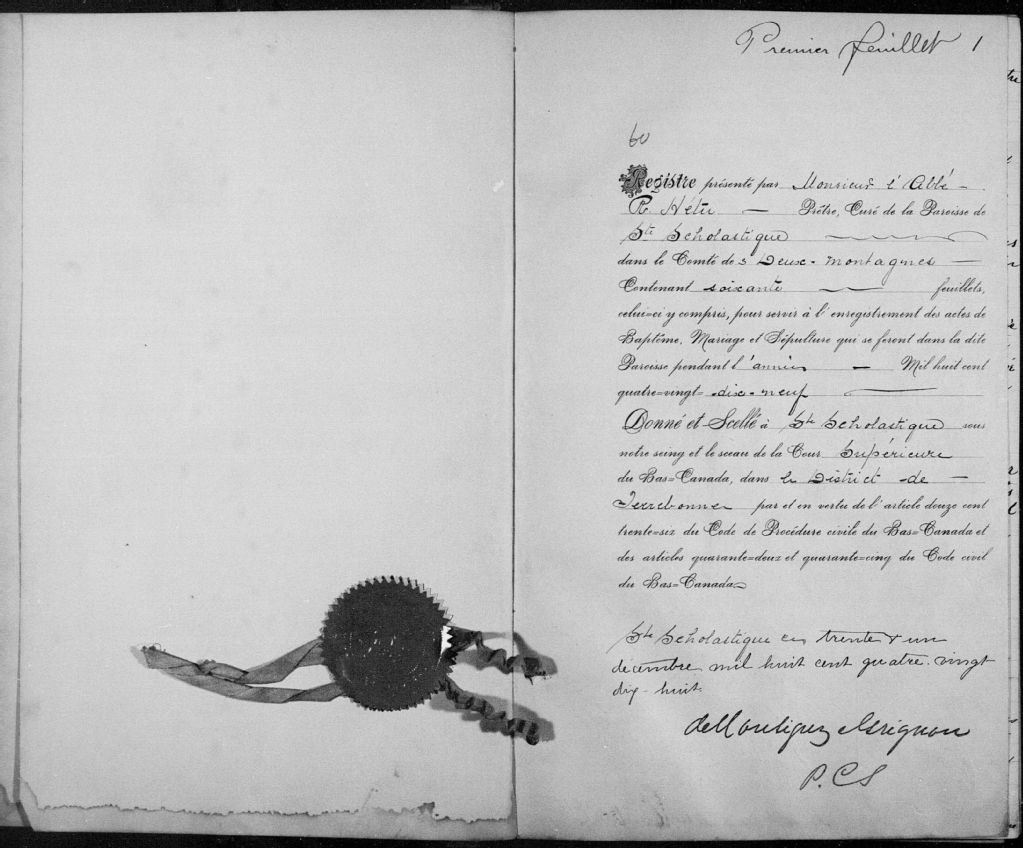 Premier feuillet 1
60
Registre présenté par Monsieur l'Abbé
R. Hétu — Prêtre, Curé de la Paroisse de
Ste Scholastique
dans le Comté des Deux-montagnes —
Contenant soixante — feuillets,
celui=ci y compris, pour servir à l'enregistrement des actes de
Baptême, Mariage et Sépulture qui se feront dans la dite
Paroisse pendant l'année — Mil huit cent
quatre=vingt=dix-neuf —
Donné et Scellé à Ste Scholastique sous
notre seing et le sceau de la Cour Supérieure
du Bas=Canada, dans le District de —
Terrebonne par et en vertu de l'article douze cent
trente=six du Code de Procédure civile du Bas=Canada et
des articles quarante=deux et quarante=cinq du Code civil
du Bas=Canada
Ste Scholastique ce trente & un
decembre mil huit cent quatre vingt
dix-huit
de Montigny &
P.C.S